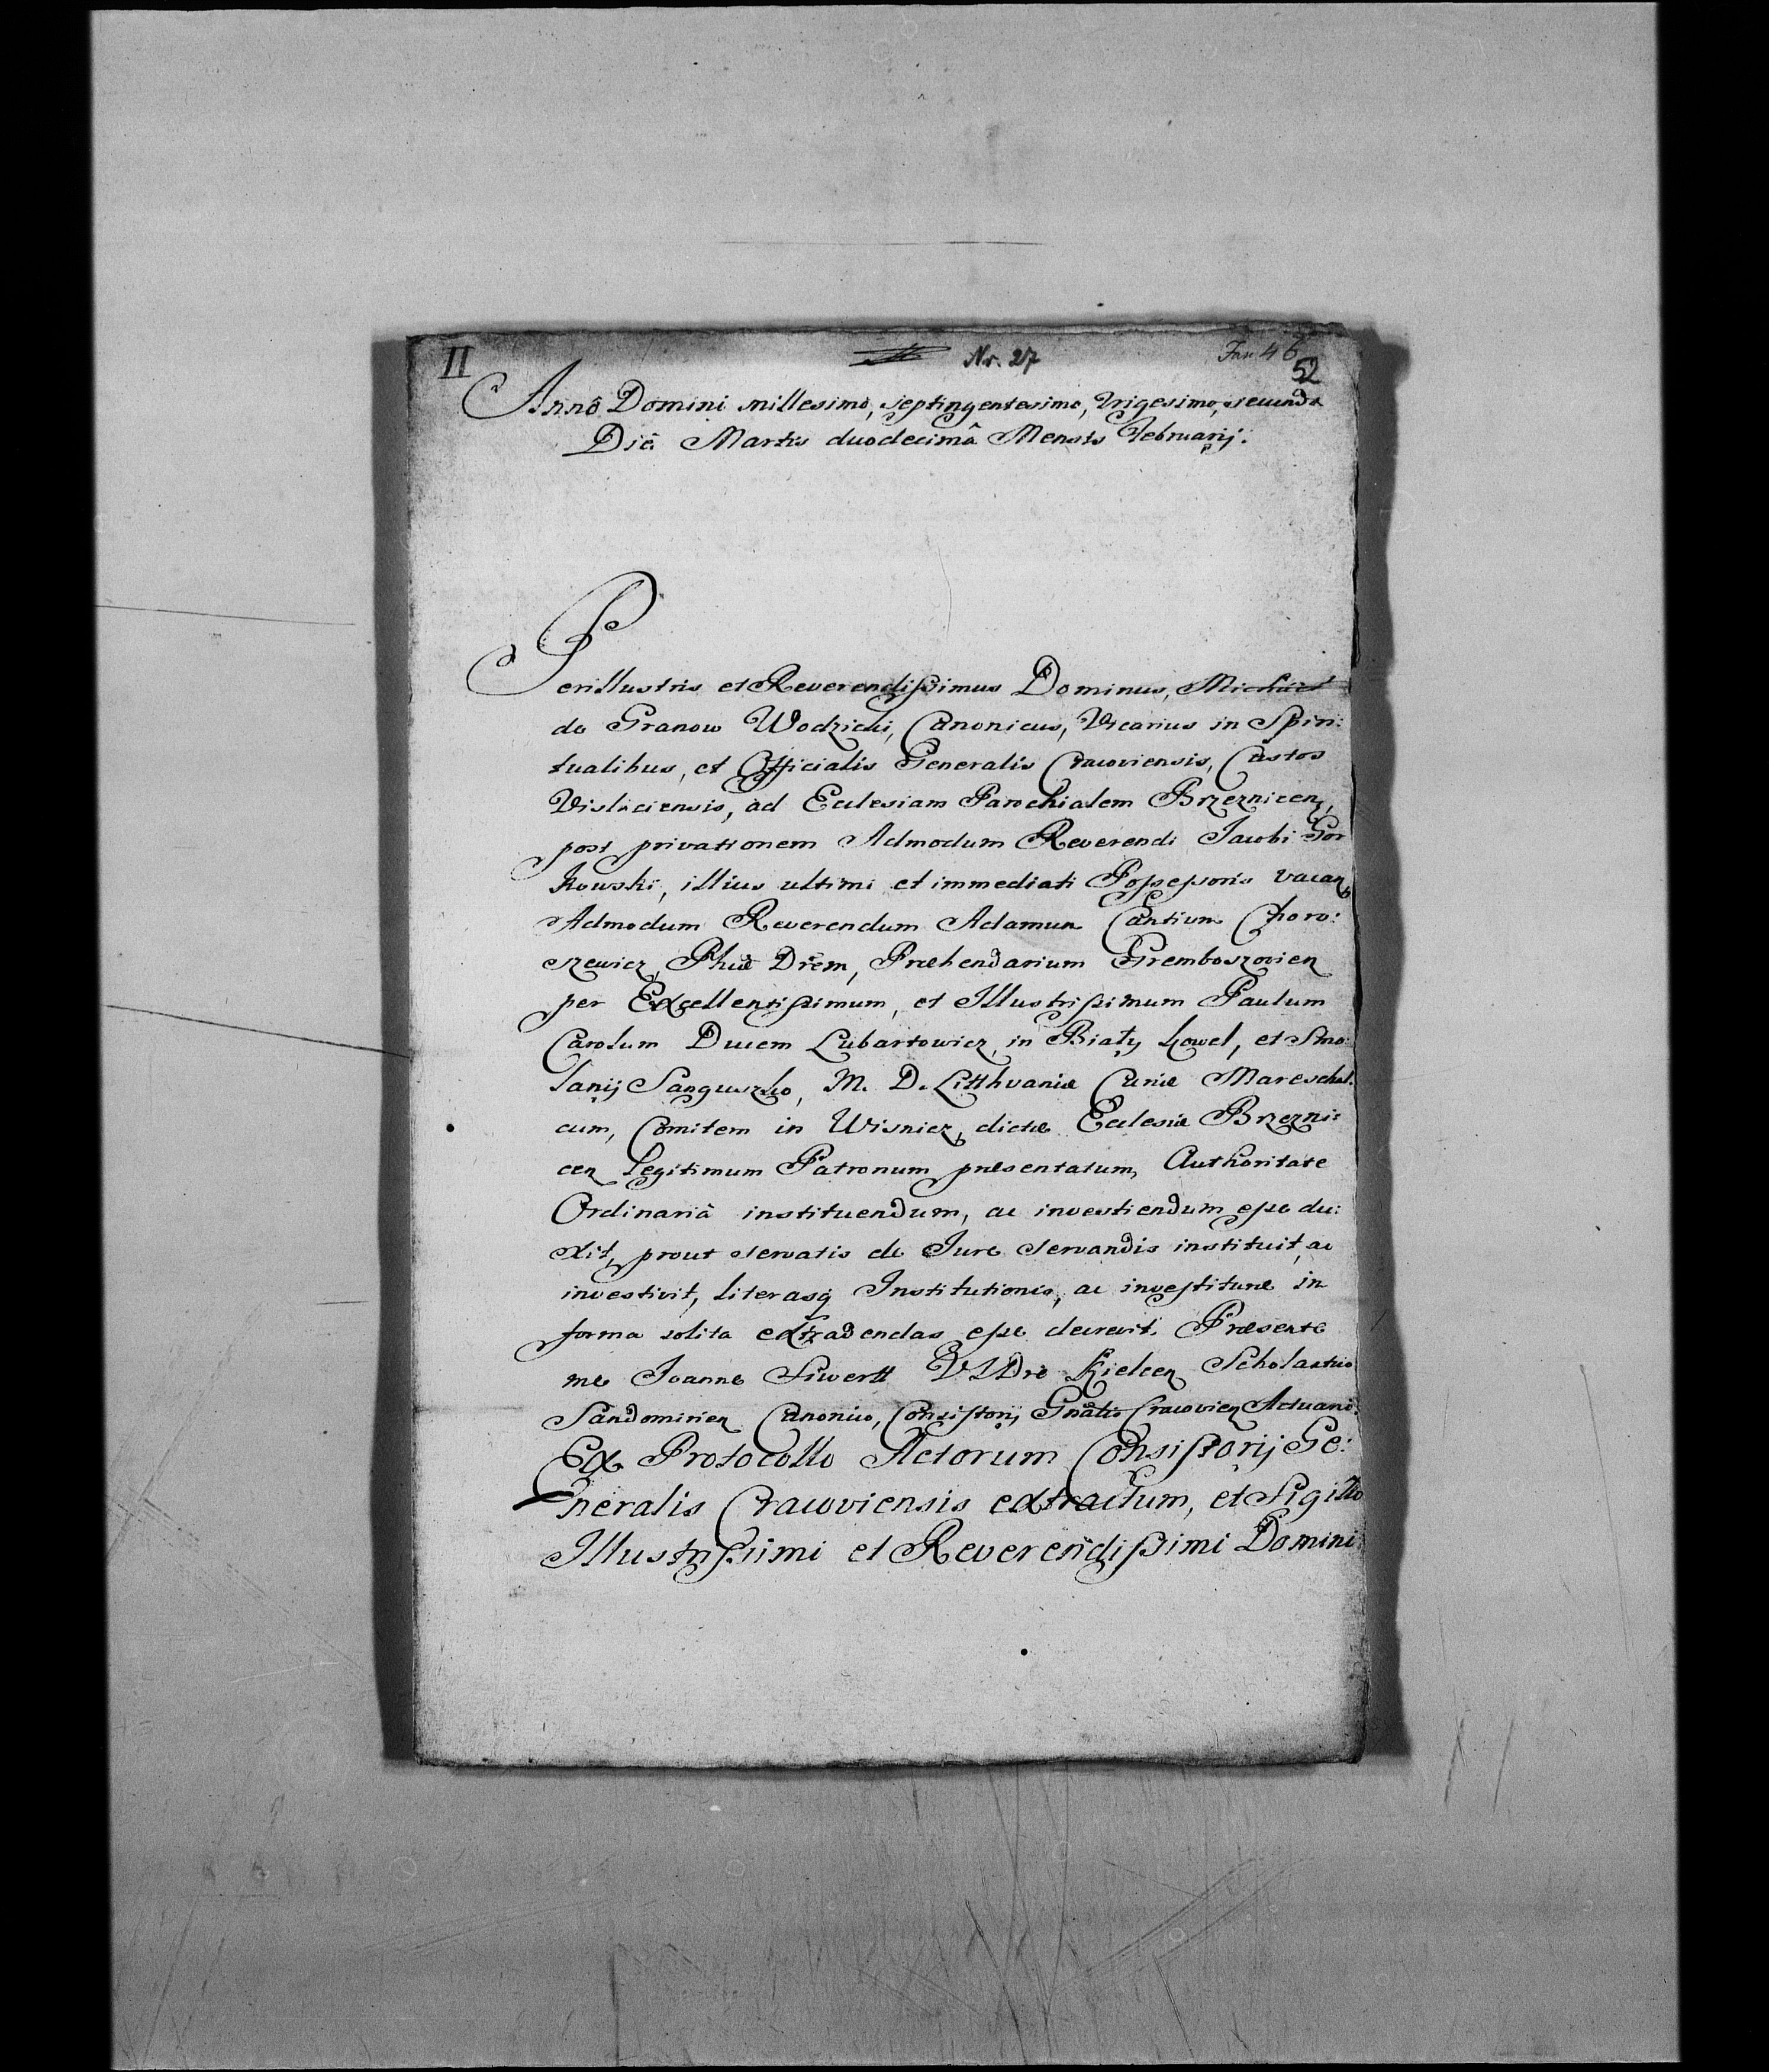 II Nr. 27
52
Annô Domini millesimo, septingentesimo, trigesimo, secundo
Diê Martis duodecimâ Mensis Februarij.
Perillustris et Reverendissimus Dominus, Michael
de Granow Wodzicki, Canonicus, Vicarius in Spiri:
tualibus, et Officialis Generalis Cracoviensis, Custos
Visliciensis, ad Ecclesiam Parochialem Brzeznicen,
post privationem Admodum Reverendi Jacobi Gor
kowski, illius ultimi et immediati Possessoris vacan,
Admodum Reverendum Adamum Cantium Choro:
szewicz, Phiæ Drêm, Præbendarium Gremboszovien
per Excellentissimum, et Illustrissimum Paulum
Carolum Ducem Lubartowicz, in Biały Kowel, et Smo:
lanij Sanguszko, M. D. Litthvaniæ Curiæ Mareschal:
cum, Comitem in Wisnicz, dictæ Ecclesiæ Brzezni:
cen Legitimum Patronum præsentatum, Authoritate
Ordinariâ instituendum, ac investiendum esse du:
xit, prout servatis de Jure servandis instituit, ac
investivit, literasq Institutionis, ac investituræ in
forma solita extradendas esse decrevit. Præsente
me Joanne Siwertt VJDre Kielcen Scholastico
Sandomirien Canonico, Consistorij Gnâlis Cracovien Actuario.
Ex Protocollo Actorum Consistorij Ge:
neralis Cracoviensis extractum, et Sigillo
Illustrissimi et Reverendissimi Domini